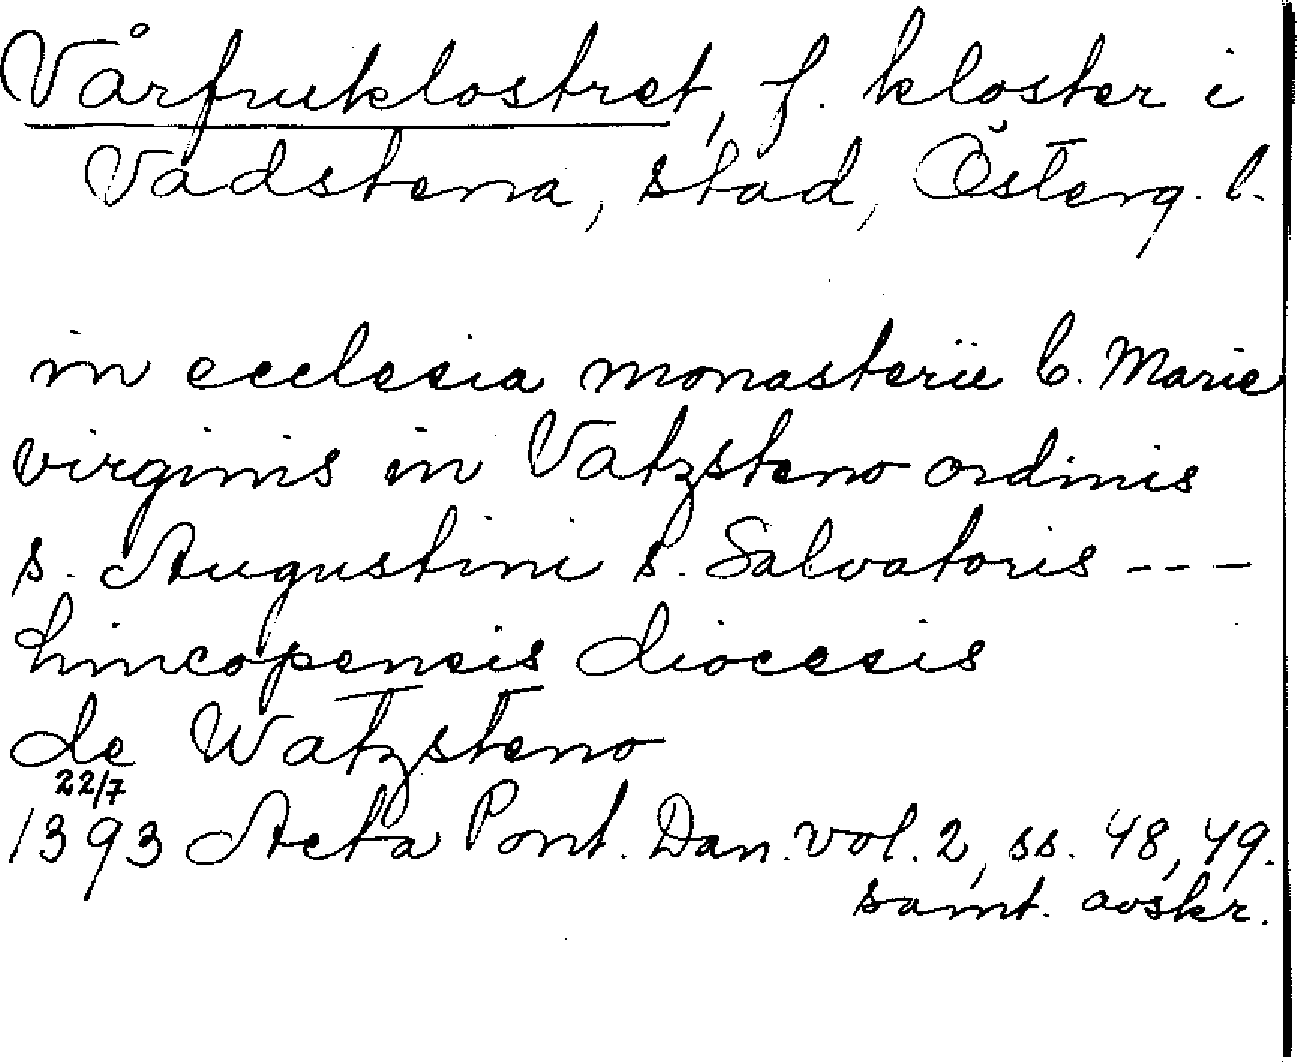 Vårfruklostret, f. kloster i
Vadstena, stad, Österg. l.
in ecclesia monasterii b. Marie
virginis in Vatzsteno ordinis
s. Augustini s. Salvatoris ---
Lincopensis diocesis
de Watzsteno
22/7
1393 Acta Pont. Dan. vol. 2, ss. 48, 49.
samt. avskr.